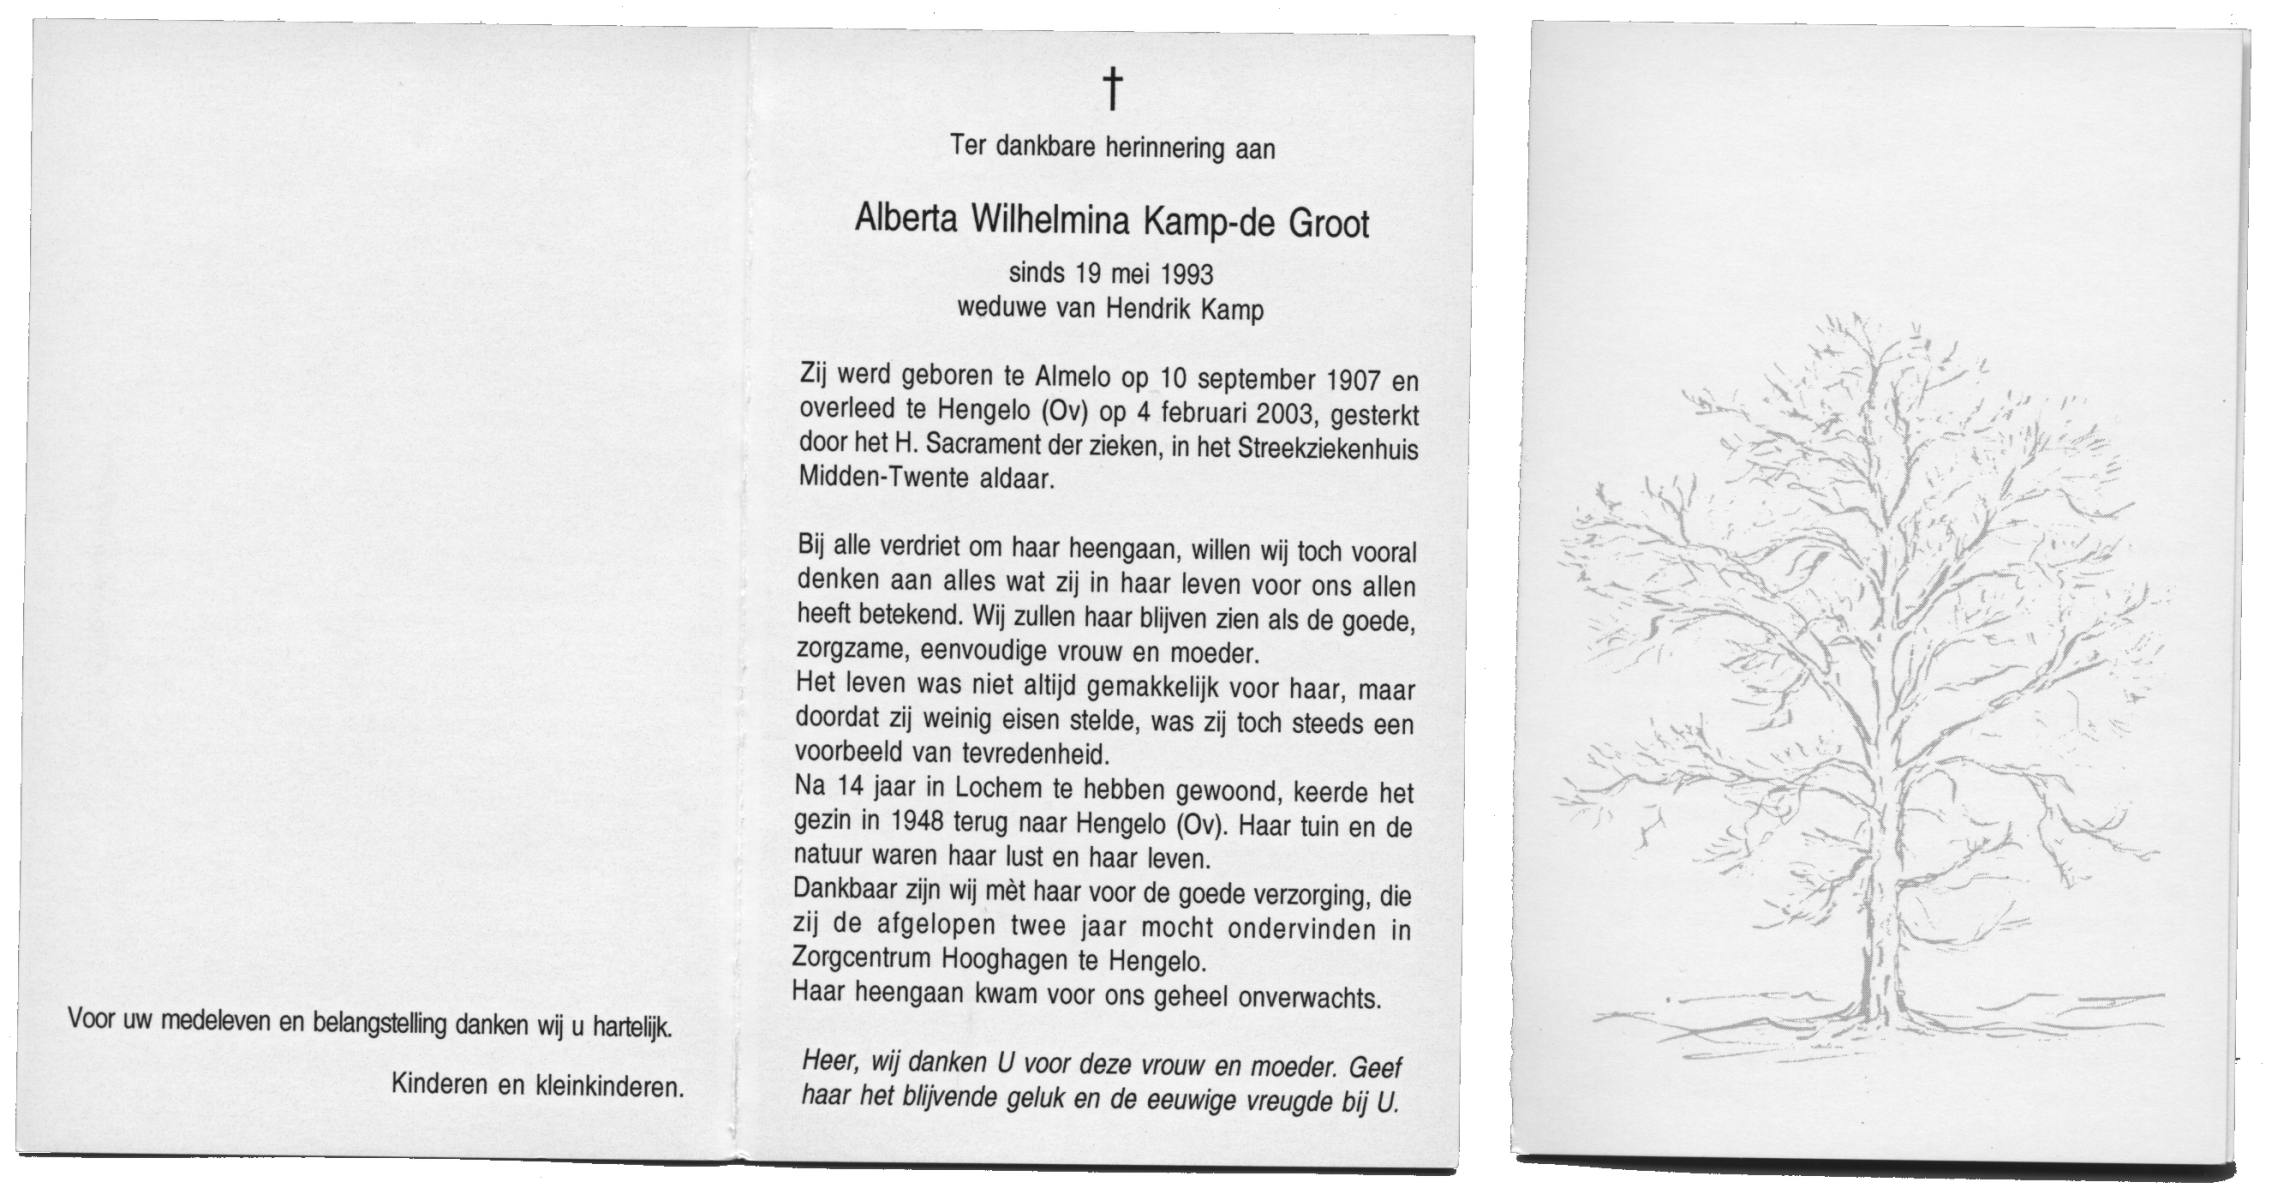 Voor uw medeleven en belangstelling danken wij u hartelijk.
Kinderen en kleinkinderen.
Ter dankbare herinnering aan
Alberta Wilhelmina Kamp-de Groot
sinds 19 mei 1993
weduwe van Hendrik Kamp
Zij werd geboren te Almelo op 10 september 1907 en
overleed te Hengelo (Ov) op 4 februari 2003, gesterkt
door het H. Sacrament der zieken, in het Streekziekenhuis
Midden-Twente aldaar.
Bij alle verdriet om haar heengaan, willen wij toch vooral
denken aan alles wat zij in haar leven voor ons allen
heeft betekend. Wij zullen haar blijven zien als de goede,
zorgzame, eenvoudige vrouw en moeder.
Het leven was niet altijd gemakkelijk voor haar, maar
doordat zij weinig eisen stelde, was zij toch steeds een
voorbeeld van tevredenheid.
Na 14 jaar in Lochem te hebben gewoond, keerde het
gezin in 1948 terug naar Hengelo (Ov). Haar tuin en de
natuur waren haar lust en haar leven.
Dankbaar zijn wij mèt haar voor de goede verzorging, die
zij de afgelopen twee jaar mocht ondervinden in
Zorgcentrum Hooghagen te Hengelo.
Haar heengaan kwam voor ons geheel onverwachts.
Heer, wij danken U voor deze vrouw en moeder. Geef
haar het blijvende geluk en de eeuwige vreugde bij U.